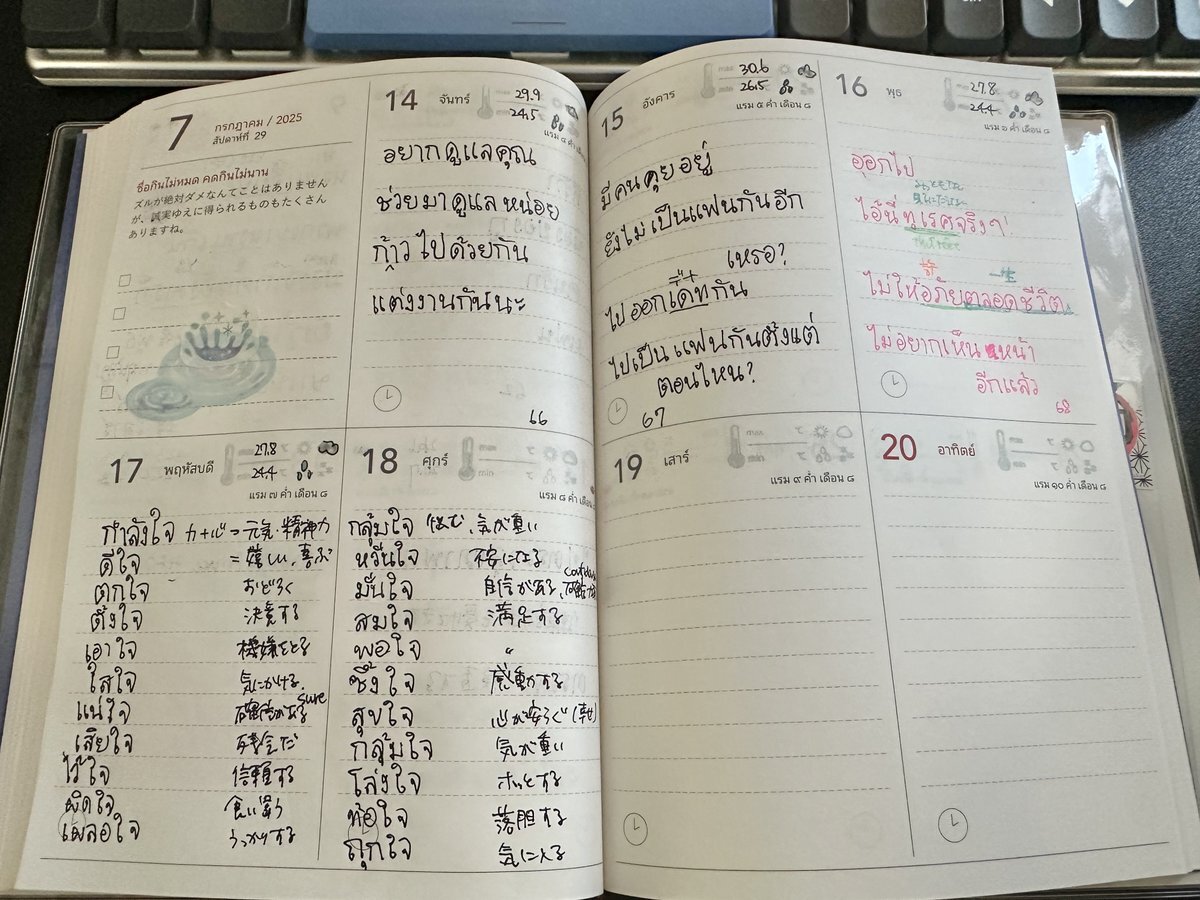 7
กรกฎาคม / 2025
สัปดาห์ที่ 29
ซื่อกินไม่หมด คดกินไม่นาน
ズルが絶対ダメなんてことはありません
が、誠実ゆえに得られるものもたくさん
ありますね。
14 จันทร์
29.9
24.5
อยากดูแลคุณ
ช่วยมาดูแลหน่อย
ก้าวไปด้วยกัน
แต่งงานกันนะ
66
15 อังคาร
max 30.6
min 26.5
แรม ๕ ค่ำ เดือน ๘
มีคนคุยอยู่
ยังไม่เป็นแฟนกันอีก
เหรอ?
ไปออกเดทกัน
ไปเป็นแฟนกันตั้งแต่
ตอนไหน?
67
16 พุธ
27.8
24.4
แรม ๖ ค่ำ เดือน ๘
ออกไป
ไอ้นี่ทุเรศจริงๆ
ไม่ให้อภัยตลอดชีวิต
一生
ไม่อยากเห็นหน้า
อีกแล้ว
68
17 พฤหัสบดี
27.8
24.4
แรม ๗ ค่ำ เดือน ๘
กำลังใจ 力+心 = 元気・精神力
ดีใจ = 嬉しい、喜ぶ
ตกใจ おどろく
ตั้งใจ 決意する
เอาใจ 機嫌をとる
ใส่ใจ 気にかける
แน่ใจ 確信がある sure
เสียใจ 残念だ
ไว้ใจ 信頼する
ผิดใจ 食い違う
เผลอใจ うっかりする
18 ศุกร์
แรม ๘ ค่ำ เดือน
กลุ้มใจ 悩む、気が重い
หวั่นใจ 不安になる
มั่นใจ 自信がある、確信
สมใจ 満足する
พอใจ 〃
ซึ้งใจ 感動する
สุขใจ 心が安らぐ (幸せ)
กลุ้มใจ 気が重い
โล่งใจ ホッとする
ท้อใจ 落胆する
ถูกใจ 気に入る
19 เสาร์
แรม ๙ ค่ำ เดือน ๘
20 อาทิตย์
แรม ๑๐ ค่ำ เดือน ๘